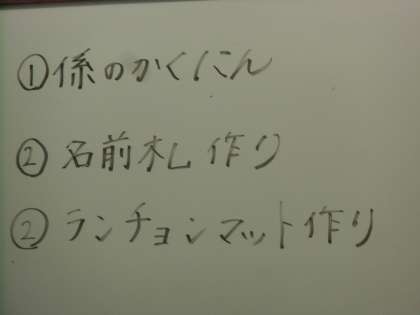 ①係のかくにん
②名前札作り
②ランチョンマット作り